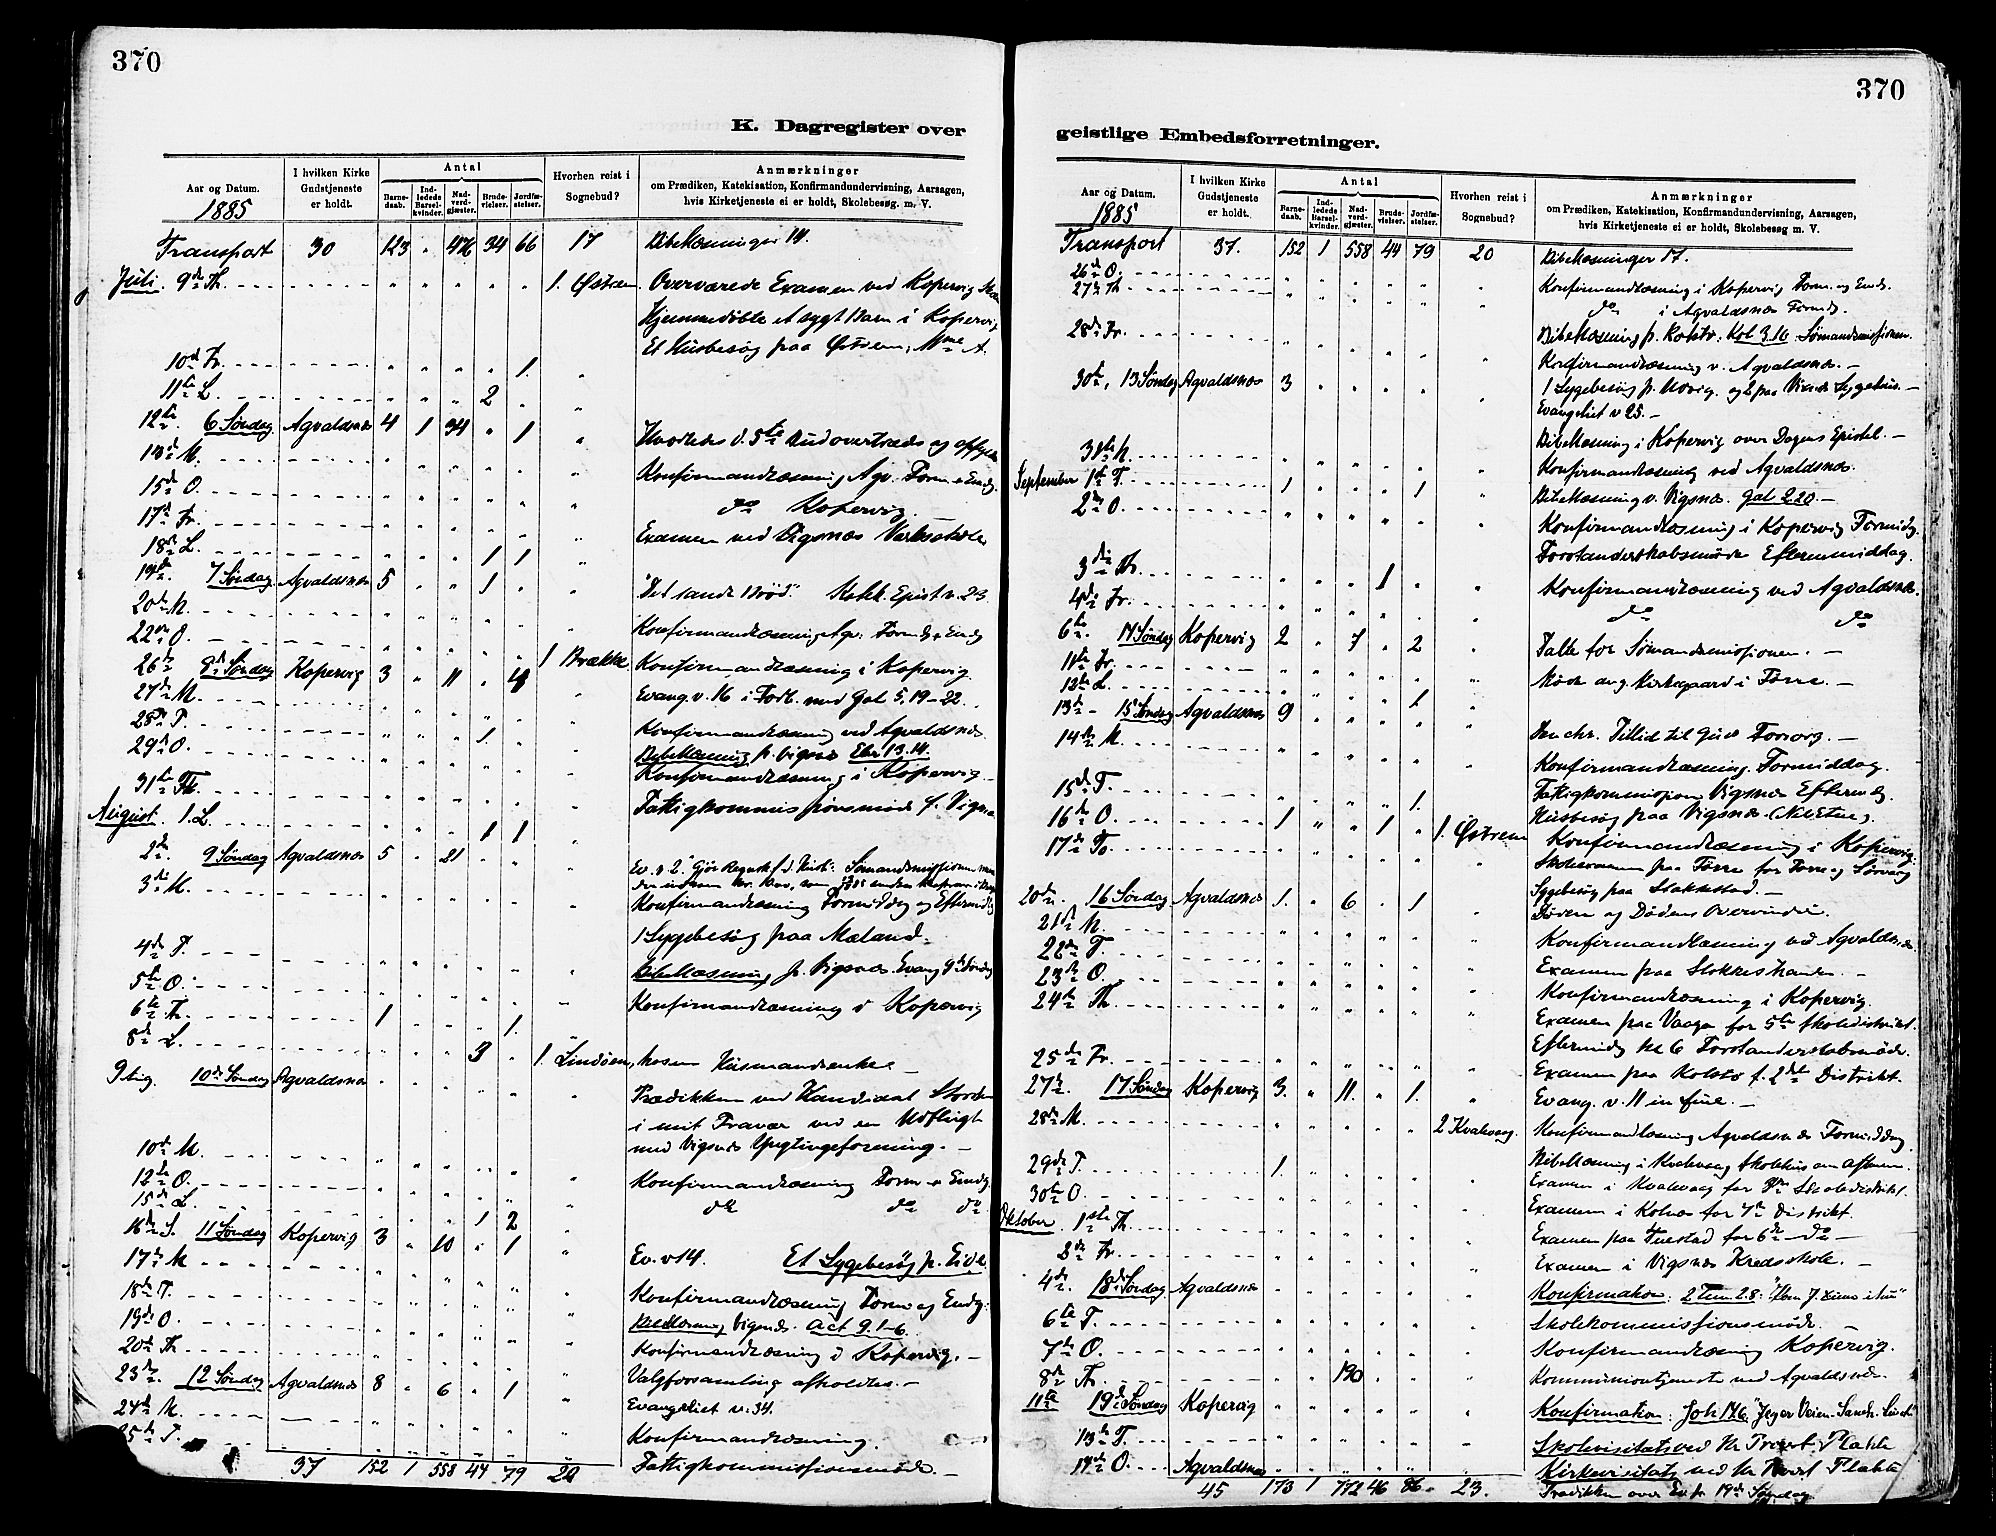 370
K. Dagregister over
Aar og Datum.
1885
I hvilken Kirke Gudstjeneste er holdt.
Antal
Barnedaab.
Indledede Barselkvinder.
Nadverdgjæster.
Brudevielser.
Jordfæstelser.
Hvorhen reist i Sognebud?
Anmærkninger
om Prædiken, Katekisation, Konfirmandundervisning, Aarsagen,
hvis Kirketjeneste ei er holdt, Skolebesøg. m. V.
Transport 30 123 " 476 34 66 17 Bibellæsninger 14.
Juli. 9de Th. 1. Østrem. Overværede Examen ved Kopervig
Hjemmedøbte et sygt Barn i Kopervig
Et Husbesøg paa Østrem;
10de Fr. 1.
11te L. 2
12te 6 Søndag Agvaldsnæs 4 1 34 " 1 Hvorledes d. 5te Bud overtrædes og
M. Konfirmandlæsning Agv. Form. &
15de O. do Kopervig.
17de Fr. Examen ved Vigsnæs
18de L. 1 1
19de. 7 Søndag Agvaldsnæs 5 " " 1 "Det sande Brød". Epist v. 23.
20de M.
22de O. Konfirmandlæsning Agv. Form. &
26de Søndag Kopervig 3 " 11 " 4 1 Brække Konfirmandlæsning i Kopervig
27de M. Evang. v. 16 i Forb. med Gal 5, 19-22.
28de T.
29de O. 1. Konfirmandlæsning ved Agvaldsnæs
Bibellæsning p. Vigsnæs Ebr 13.14.
31te Konfirmandlæsning i Kopervig
August. 1. L. 1 1 Fattigkommissionsmøde f. Vigsnæs
2de. 9 Søndag Agvaldsnæs 5 " 21
3die M. Konfirmandlæsning Formiddag og Eftermidg
1 Sygebesøg paa Mæland.
4de T. Bibellæsning p. Vigsnæs. Evang 9de Søndag
5te O.
6te Th. 1 1. Konfirmandlæsning i Kopervig
8de L. 3 " 1. Lindøen, hosen Husmandsenke
9 10de Søndag Agvaldsnæs Prædikken ved Kandidat
i mit Fravær ved en Udflugt
med Vigsnæs Ynglingeforening. —
10de M.
12te O. Konfirmandlæsning Form &
15de L. 1 2 do do do
16de S. 11 Søndag Kopervig 3 " 10 " 1
17de M Ev. v 14. Et Sygebesøg p. Eide
18de T. Konfirmandlæsning Form og
19de O. Bibellæsning Vigsnæs. Act 9.1-6.
20de Th. Konfirmandlæsning i Kopervig. —
23de. 12 Søndag Agvaldsnæs 8 " 6 " 1 Valgforsamling afholdtes. —
24de M. Evangeliet v. 34.
25de T. Konfirmandlæsning.
37 152 1 558 44 79 20 Fattigkommissionsmøde. —
370
geistlige Embedsforretninger.
Aar og Datum.
1885
I hvilken Kirke Gudstjeneste er holdt.
Antal
Barnedaab.
Indledede Barselkvinder.
Nadverdgjæster.
Brudevielser.
Jordfæstelser.
Hvorhen reist i Sognebud?
Anmærkninger
om Prædiken, Katekisation, Konfirmandundervisning, Aarsagen,
hvis Kirketjeneste ei er holdt, Skolebesøg m. V.
Transport 37. 152 1 558 44 79 20 Bibellæsninger 17.
26de O. Konfirmandlæsning i Kopervig Form. og
27de Th do i Agvaldsnæs Formdg.
28de Fr. Bibellæsning p. Kolstø. Kol 3.16. Sømandsmissionen
Konfirmandlæsning v. Agvaldsnæs. —
30te, 13 Søndag Agvaldsnæs 3 1 Sygebesøg p. og 2 paa Sygehus. —
Evangeliet v 25. —
31te M. Bibellæsning i Kopervig over Dagens Epistel. —
September 1ste T. 1 1 Konfirmandlæsning ved Agvaldsnæs.
2den O. Bibellæsning v. Vigsnæs. Gal 2.20. —
Konfirmandlæsning i Kopervig Formidg.
Forstanderskabsmøde Eftermiddag.
3die Th. 1 Konfirmandlæsning ved Agvaldsnæs.
4de Fr. do do
6te. 14 Søndag Kopervig 2 " 7 " 2 Talte for Sømandsmissionen. —
11te Fr. Møde ang. Kirkegaard i Førre. —
12te L. 1
13de - 15 Søndag Agvaldsnæs 9 Den chr. Tillid til Guds Forsorg. —
14de M. Konfirmandlæsning. Formiddag.
15de T. 1. Fattigkommission Vigsnæs Eftermdg.
16de O. 1 1 Husbesøg paa Vigsnæs.
17de To 1. Østrem Konfirmandlæsning i Kopervig.
Skoleexamen paa Førre for Førre og
Sygebesøg paa Stokkestad. —
20de. 16 Søndag Agvaldsnæs 1. " 6 " 1 Døden og Dødens Overvinder.
21de M.
22de T. Konfirmandlæsning ved Agvaldsnæs
23de O. Examen paa —
24de Th. Konfirmandlæsning i Kopervig.
Examen paa Vaage for 5te Skoledistrikt.
Eftermidg Kl 6 Forstanderskabsmøde.
25de Fr. Examen paa Kolstø f. 2det Distrikt.
27de. 17 Søndag Kopervig 3. " 11. " 1. Evang. v. 11 in fine. —
28de M. 2 Kvalevaag. Konfirmandlæsning Agvaldsnæs Formiddag
29de T. 1. Bibellæsning i Kvalevaag Skolehus om aftenen.
30te O. Examen i Kvalevaag for Skoledistrikt.
Oktober 1ste Th. Examen i Kolnes for 7de Distrikt.
Fr. Examen paa for 6te do —
Examen i Vigsnæs Kredsskole. —
4de. 18de Søndag Agvaldsnæs Konfirmation: 2 Tim 2.8:
6te T. Skolekommissionsmøde. —
7de O. Konfirmandlæsning Kopervig.
8de Th. 190 Kommuniontjeneste ved Agvaldsnæs.
11te 19de Søndag Kopervig Konfirmation: Joh 14.6. "Jeg er Veien Sandh. Livet"
13de T. Skolevisitats ved Hr Provst Flakke
14de O. Agvaldsnæs Kirkevisitats ved Hr Provst
45 173 1 772 46 86. 23. Prædikken over Ev. p. 19de Søndag